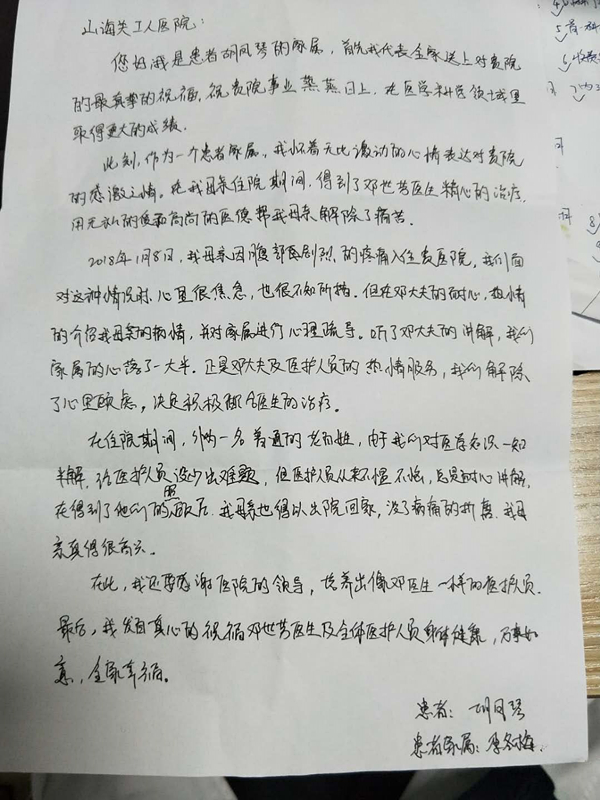 山海关工人医院:
您好!我是患者胡凤琴的家属,首先我代表全家送上对贵院
的最真挚的祝福,祝贵院事业蒸蒸日上,在医学科医领域里
取得更大的成绩.
此刻,作为一个患者家属,我怀着无比激动的心情表达对贵院
的感激之情,在我母亲住院期间,得到了邓世芳医生精心的治疗,
用无私的爱和高尚的医德帮我母亲解除了痛苦.
2018年1月8日,我母亲因腹部剧烈的疼痛入住贵医院,我们面
对这种情况时,心里很焦急,也很不知所措.但在邓大夫的耐心,热情
的介绍我母亲的病情,并对家属进行心理疏导.听了邓大夫的讲解,我们
家属的心落了一大半.正是邓大夫及医护人员的热情服务,我们解除
了心里顾虑,决定积极配合医生的治疗.
在住院期间,一名普通的老百姓,由于我们对医学知识一知
半解,给医护人员没少出难题,但医护人员从来不慌不忙,总是耐心讲解,
在得到了他们的照顾后.我母亲也得以出院回家,没了病痛的折磨.我母
亲真得很高兴.
在此,我还要感谢医院的领导,培养出像邓医生一样的医护人员.
最后,我发自真心的祝福邓世芳医生及全体医护人员身体健康,万事如
意,全家幸福。
患者:胡凤琴
患者家属:冬梅.